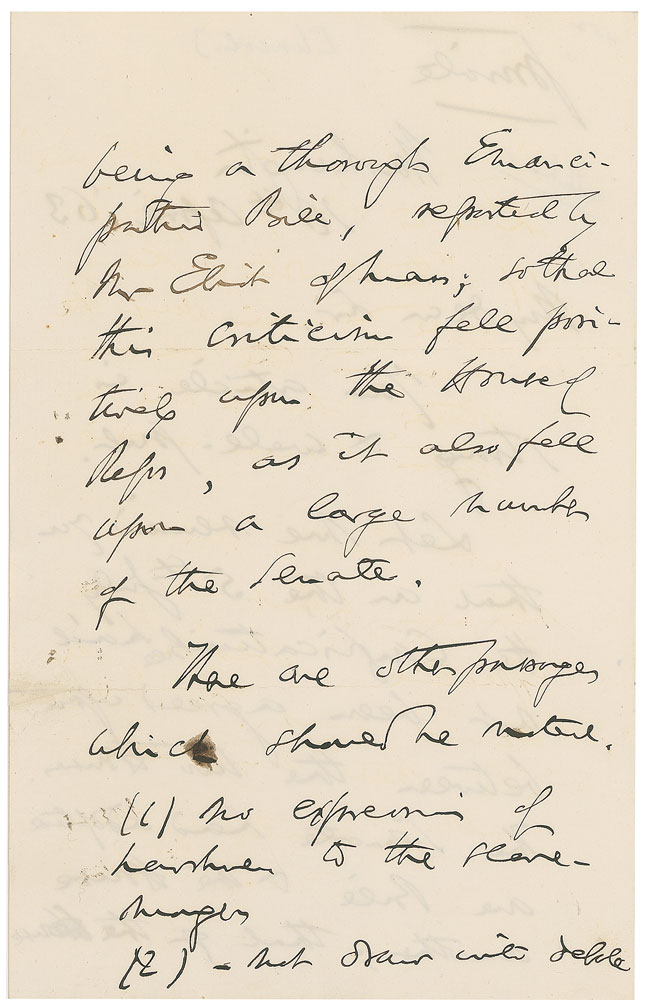 being a thorough Emanci-
pation Bill, reported by
Mr Eliot of Mass; so that
this criticism fell posi-
tively upon the House of
Reps, as it also fell
upon a large number
of the Senate.
There are other passages
which should be noticed.
(1) no expression of
harshness to the slave-
mongers
(2) - not draw into debate